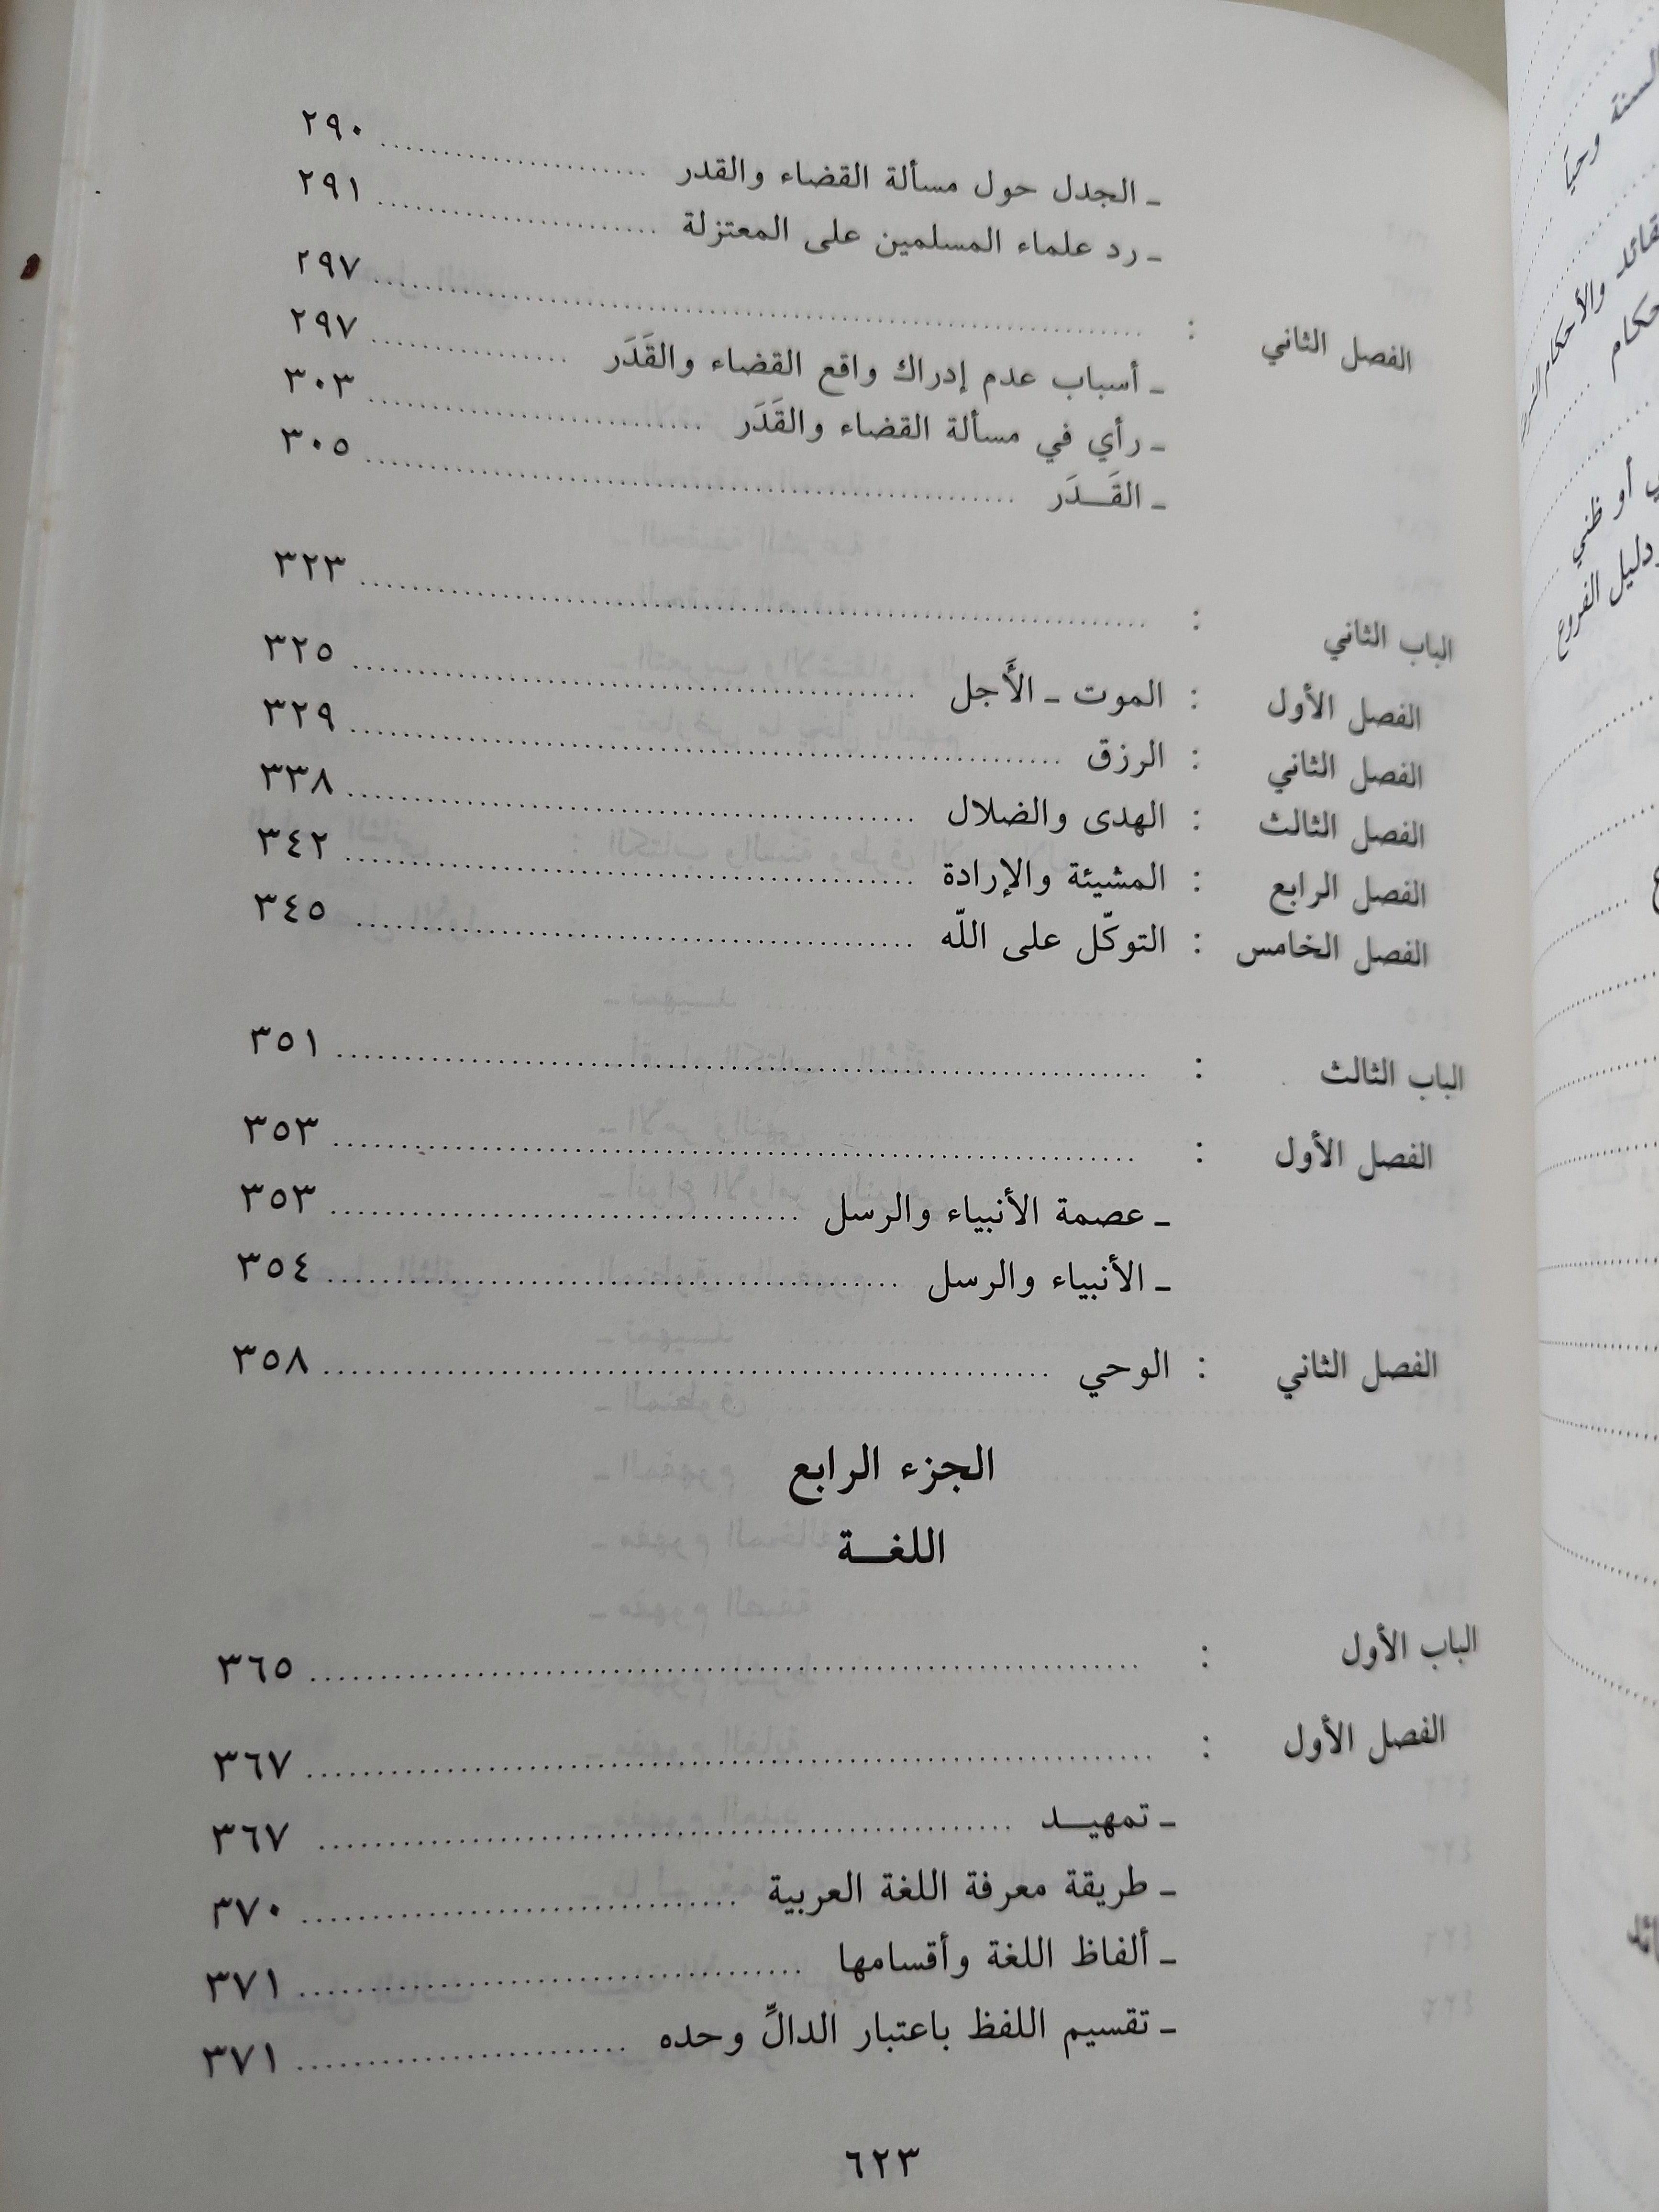 ـ الجدل حول مسألة القضاء والقدر ........ ٢٩٠
ـ رد علماء المسلمين على المعتزلة ........ ٢٩١
الفصل الثاني : ........ ٢٩٧
ـ أسباب عدم إدراك واقع القضاء والقَدَر ........ ٢٩٧
ـ رأي في مسألة القضاء والقَدَر ........ ٣٠٣
ـ القَـدَر ........ ٣٠٥
الباب الثاني : ........ ٣٢٣
الفصل الأول : الموت ـ الأَجل ........ ٣٢٥
الفصل الثاني : الرزق ........ ٣٢٩
الفصل الثالث : الهدى والضلال ........ ٣٣٨
الفصل الرابع : المشيئة والإرادة ........ ٣٤٢
الفصل الخامس : التوكّل على اللّه ........ ٣٤٥
الباب الثالث : ........ ٣٥١
الفصل الأول : ........ ٣٥٣
ـ عصمة الأنبياء والرسل ........ ٣٥٣
ـ الأنبياء والرسل ........ ٣٥٤
الفصل الثاني : الوحي ........ ٣٥٨
الجزء الرابع
اللغـة
الباب الأول : ........ ٣٦٥
الفصل الأول : ........ ٣٦٧
ـ تمهيـد ........ ٣٦٧
ـ طريقة معرفة اللغة العربية ........ ٣٧٠
ـ ألفاظ اللغة وأقسامها ........ ٣٧١
ـ تقسيم اللفظ باعتبار الدالِّ وحده ........ ٣٧١
٦٢٣
السنة وحياً
والأحكام
أو ظني
دليل الفروع